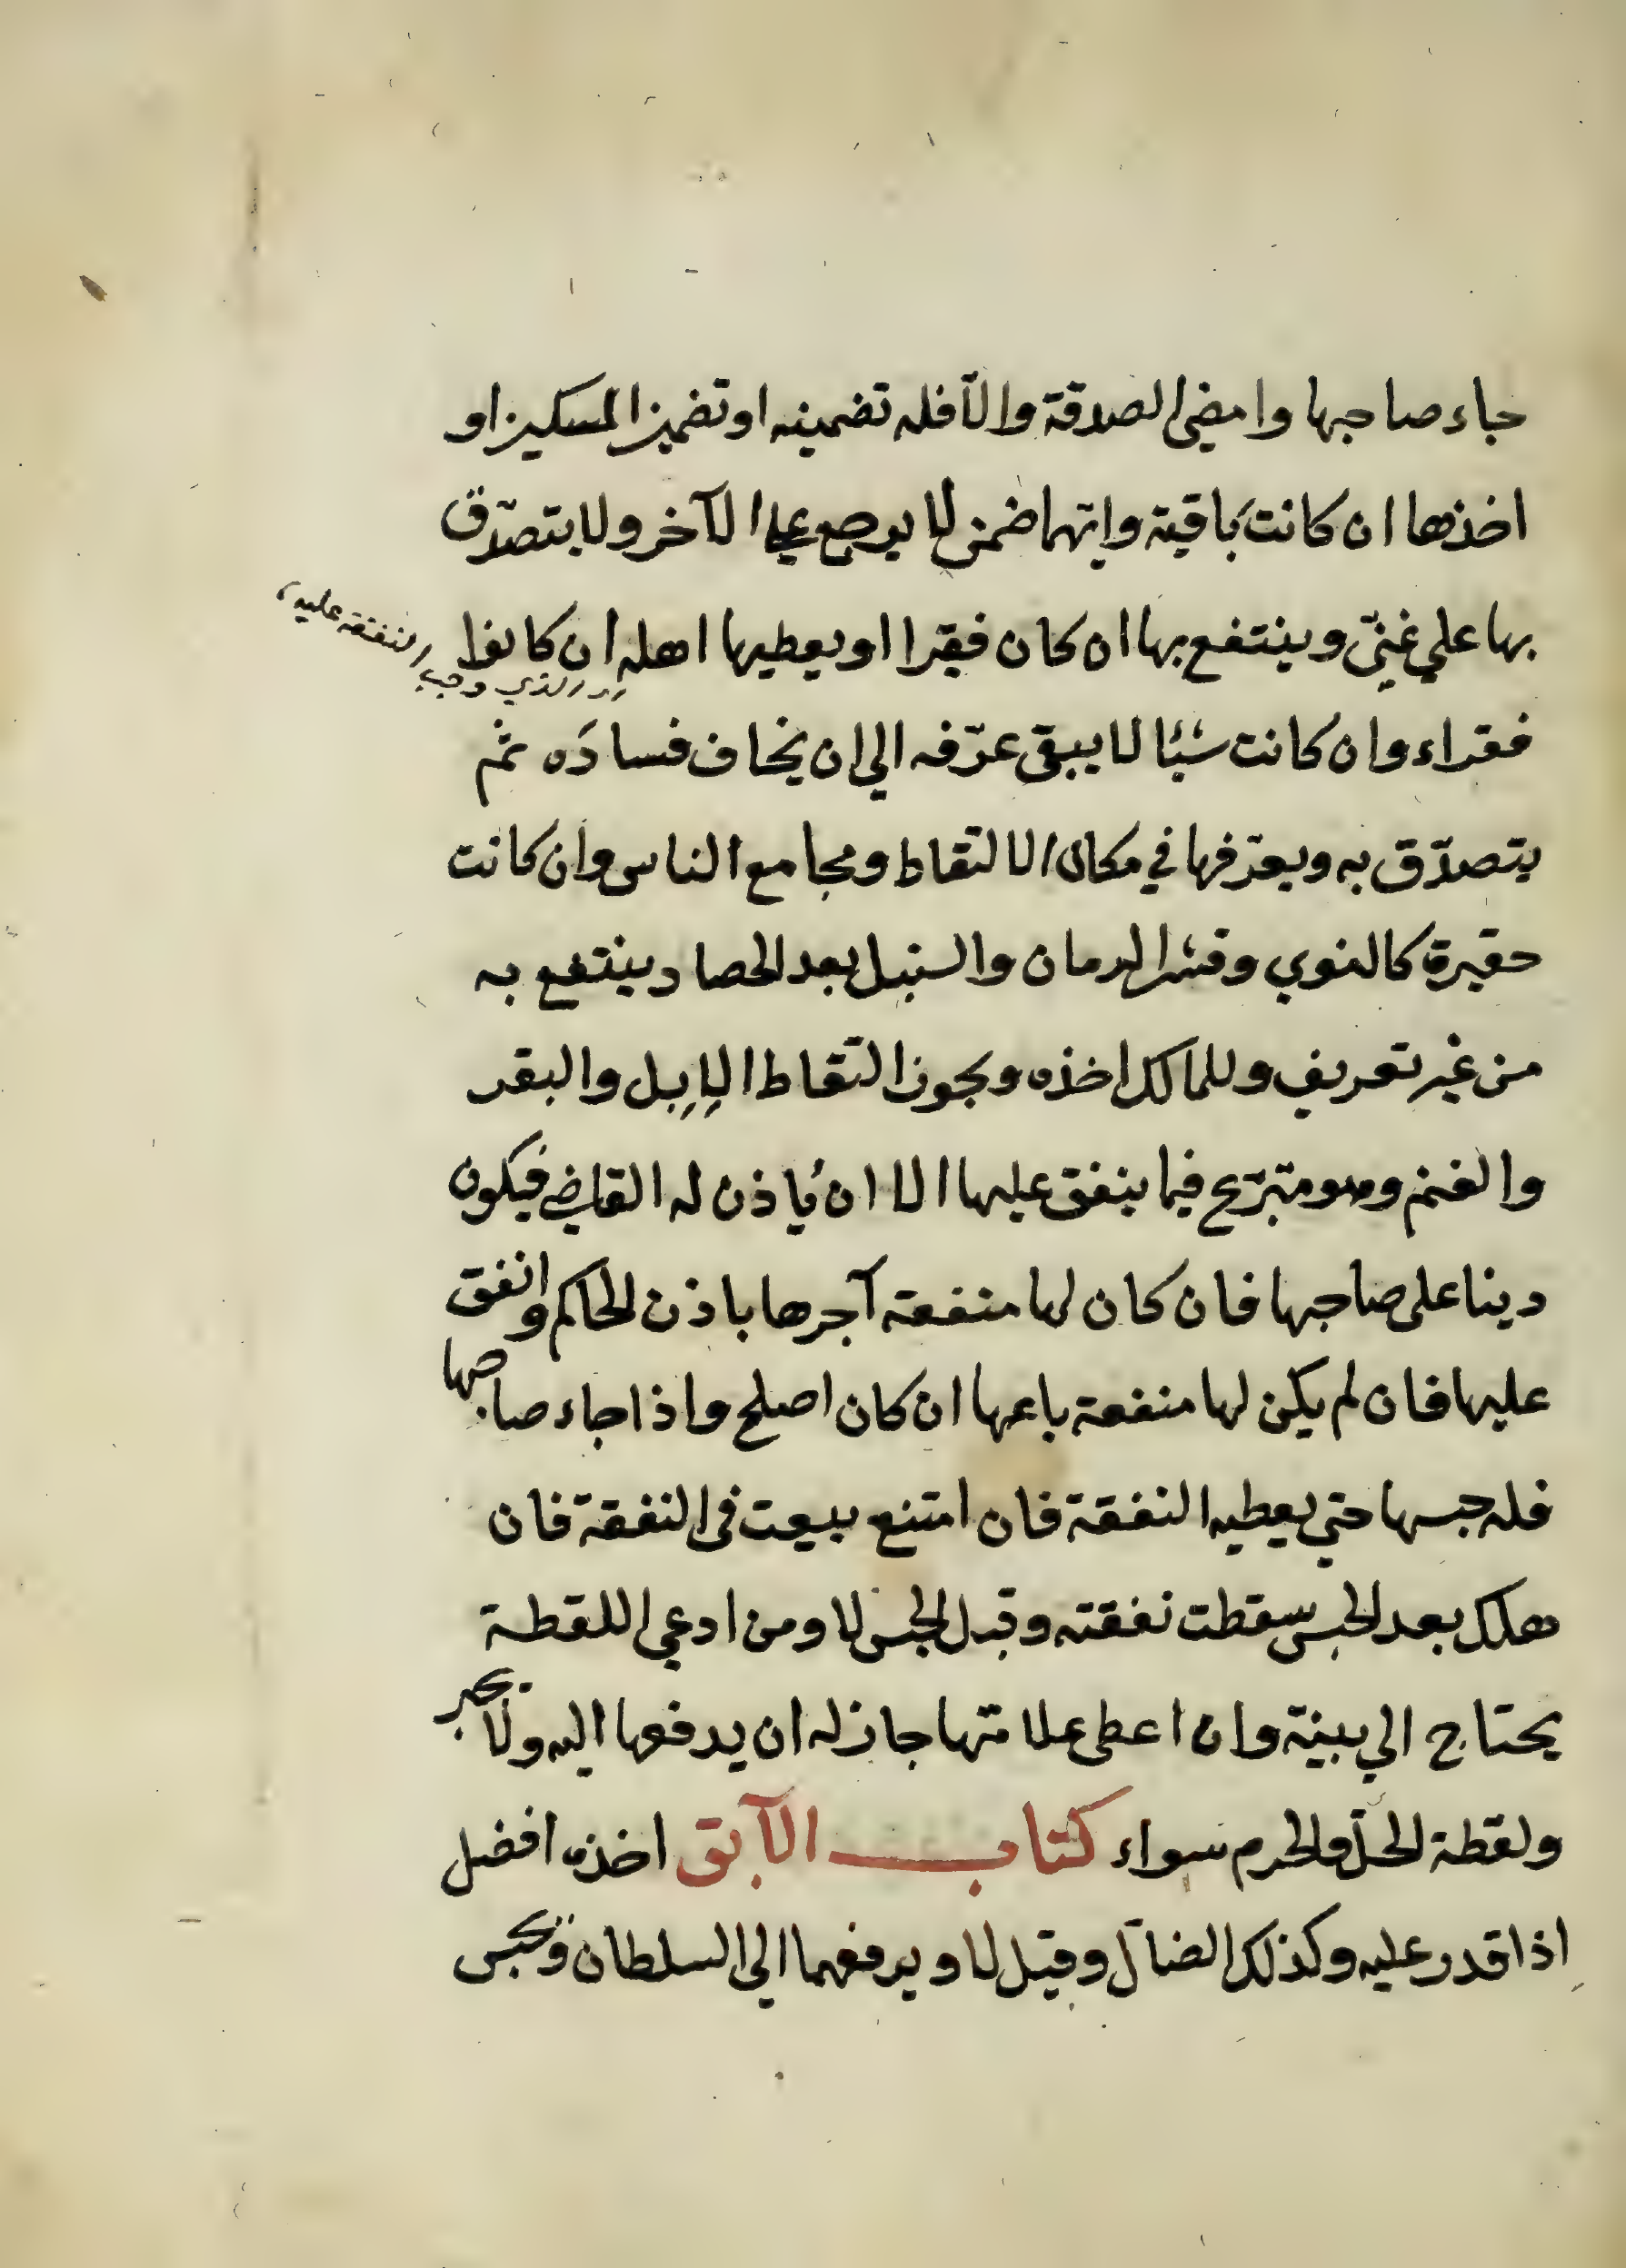 جاء صاحبها وامضي الصدقة والّا فله تضمينه او تضمين المسكين او
اخذها ان كانت باقية وايّهما ضمن لا يرجع علي الآخر ولا يتصدّق
بها علي غنيّ وينتفع بها ان كان فقيرا او يعطيها اهله ان كانوا
الذي وجب النفقة عليه
فقراء وان كانت شيئا لا يبقي عرّفه الي ان يخاف فساده ثم
يتصدّق به ويعرّفها في مكان الالتقاط ومجامع الناس وان كانت
حقيرة كالنوي وقشر الرمان والسنبل بعد الحصاد ينتفع به
من غير تعريف وللمالك اخذه ويجوز التقاط الإبل والبقر
والغنم وهو متبرّع فيما ينفق عليها الا ان ياذن له القاضي فيكون
دينا على صاحبها فان كان لها منفعة آجرها باذن الحاكم وانفق
عليها فان لم يكن لها منفعة باعها ان كان اصلح واذا جاء صاحبها
فله حبسها حتي يعطيه النفقة فان امتنع بيعت في النفقة فان
هلك بعد الحبس سقطت نفقته وقبل الحبس لا ومن ادعي اللقطة
يحتاج الي بينة وان اعطى علامتها جاز له ان يدفعها اليه ولا يجبر
ولقطة الحلّ والحرم سواء كتاب الآبق اخذه افضل
اذا قدر عليه وكذلك الضالّ وقيل لا ويرفعهما الي السلطان ويحبس